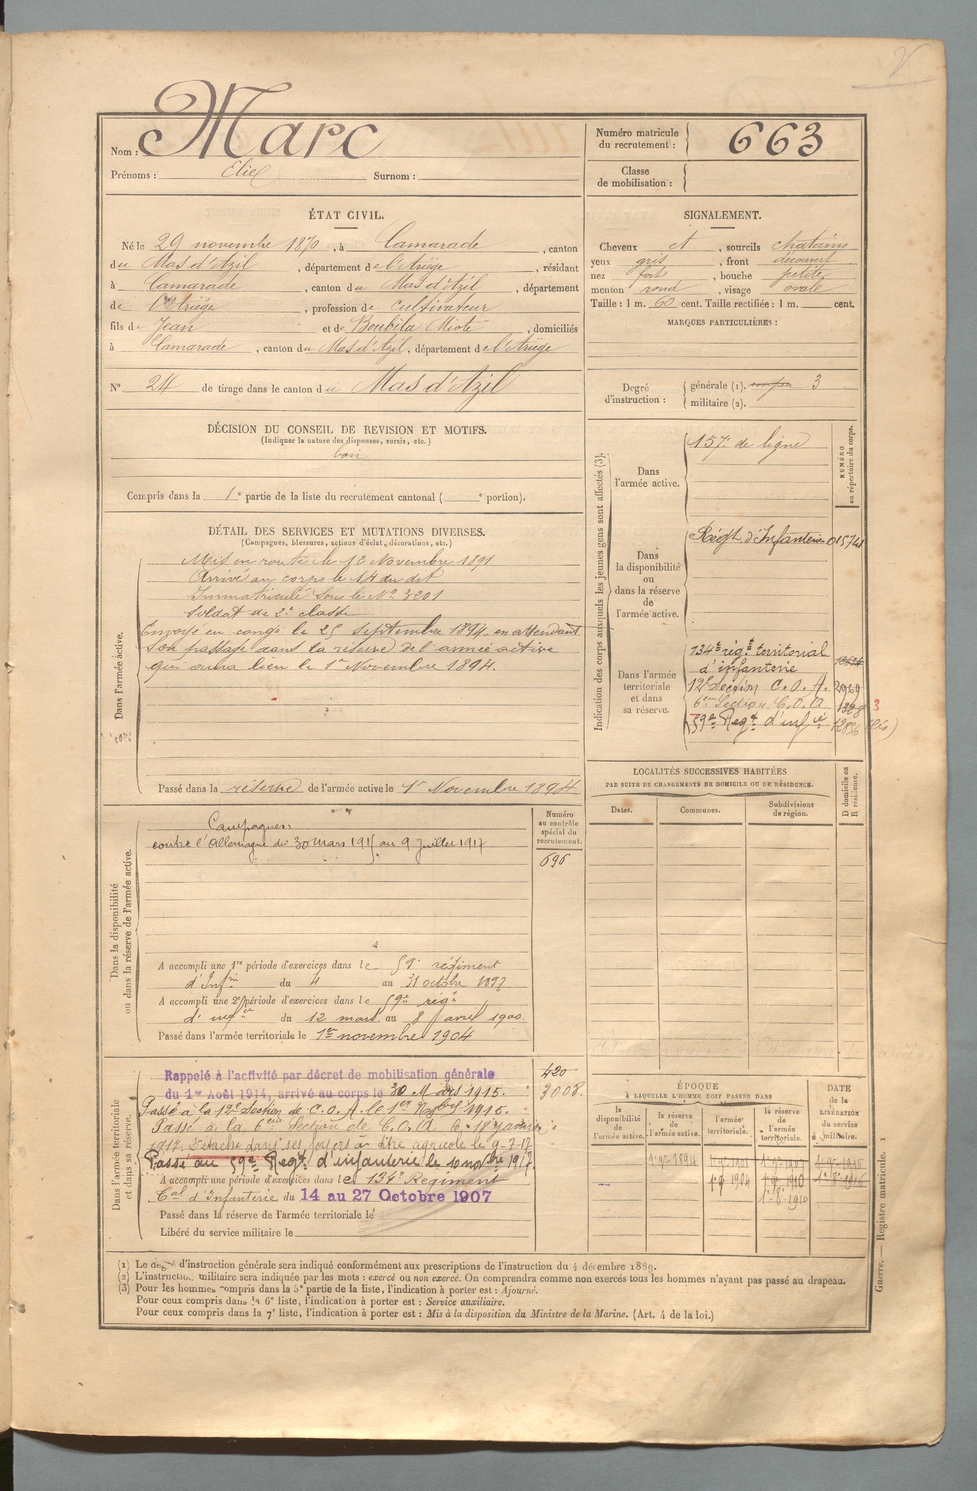 Nom : Marc
Prénoms : Elie Surnom :
Numéro matricule du recrutement : 663
Classe de mobilisation :
ÉTAT CIVIL.
Né le 29 novembre 1870, à Camarade, canton
du Mas d'Azil, département de l'Ariège, résidant
à Camarade, canton du Mas d'Azil, département
de l'Ariège, profession de cultivateur
fils de Jean et de Boubila Miote, domiciliés
à Camarade, canton du Mas d'Azil, département de l'Ariège
N° 24 de tirage dans le canton du Mas d'Azil
SIGNALEMENT.
Cheveux et, sourcils chatains
yeux gris, front découvert
nez fort, bouche petite
menton rond, visage ovale
Taille : 1 m. 60 cent. Taille rectifiée : 1 m. cent.
MARQUES PARTICULIÈRES :
Degré d'instruction : générale (1). 3
militaire (2).
DÉCISION DU CONSEIL DE REVISION ET MOTIFS.
(Indiquer la nature des dispenses, sursis, etc.)
bon
Compris dans la 1e partie de la liste du recrutement cantonal ( e portion).
DÉTAIL DES SERVICES ET MUTATIONS DIVERSES.
(Campagnes, blessures, actions d'éclat, décorations, etc.)
Dans l'armée active.
Mis en route le 13 Novembre 1891
Arrivé au corps le 14 du dit
Immatriculé sous le N° 3201
soldat de 2e classe
Envoyé en congé le 25 septembre 1894 en attendant
son passage dans la réserve de l'armée active
qui aura lieu le 1er Novembre 1894.
Passé dans la réserve de l'armée active le 1er Novembre 1894
Indication des corps auxquels les jeunes gens sont affectés (3).
NUMÉRO au répertoire du corps.
Dans l'armée active.
157e de ligne
Dans la disponibilité ou dans la réserve de l'armée active.
Régt d'Infanterie 01574
Dans l'armée territoriale et dans sa réserve.
134e régt territorial
d'infanterie
12e Section C.O.A. 2969
6eme Section C.O.A
59e Régt d'infie
LOCALITÉS SUCCESSIVES HABITÉES
PAR SUITE DE CHANGEMENTS DE DOMICILE OU DE RÉSIDENCE.
Dates. Communes. Subdivisions de région.
D domicile ou R résidence.
Dans la disponibilité ou dans la réserve de l'armée active.
Numéro au contrôle spécial du recrutement.
696
Campagnes
contre l'Allemagne du 30 mars 1915 au 9 Juillet 1917
A accompli une 1re période d'exercices dans le 59e régiment
d'Infie du 4 au 31 octobre 1897
A accompli une 2e période d'exercices dans le 59e régt
d'infie du 12 mars au 8 avril 1900
Passé dans l'armée territoriale le 1er novembre 1904
Dans l'armée territoriale et dans sa réserve.
420
3008
Rappelé à l'activité par décret de mobilisation générale
du 1er Août 1914, arrivé au corps le 30 Mars 1915.
Passé à la 12e Section de C.O.A. le 1915.
Passé à la 6eme Section de C.O.A. le 18
1917. Détaché dans ses foyers à titre agricole le 9-7-17
Passé au 59e Régt d'infanterie le 10 novbre 1917
A accompli une période d'exercices dans le 134e Régiment
Tal d'Infanterie du 14 au 27 Octobre 1907
Passé dans la réserve de l'armée territoriale le
Libéré du service militaire le
ÉPOQUE
À LAQUELLE L'HOMME DOIT PASSER DANS
la disponibilité de l'armée active.
la réserve de l'armée active.
l'armée territoriale.
la réserve de l'armée territoriale.
DATE de la LIBÉRATION du service militaire.
(1) Le degré d'instruction générale sera indiqué conformément aux prescriptions de l'instruction du 4 décembre 1889.
(2) L'instruction militaire sera indiquée par les mots : exercé ou non exercé. On comprendra comme non exercés tous les hommes n'ayant pas passé au drapeau.
(3) Pour les hommes compris dans la 5e partie de la liste, l'indication à porter est : Ajourné.
Pour ceux compris dans la 6e liste, l'indication à porter est : Service auxiliaire.
Pour ceux compris dans la 7e liste, l'indication à porter est : Mis à la disposition du Ministre de la Marine. (Art. 4 de la loi.)
Guerre. — Registre matricule. 1